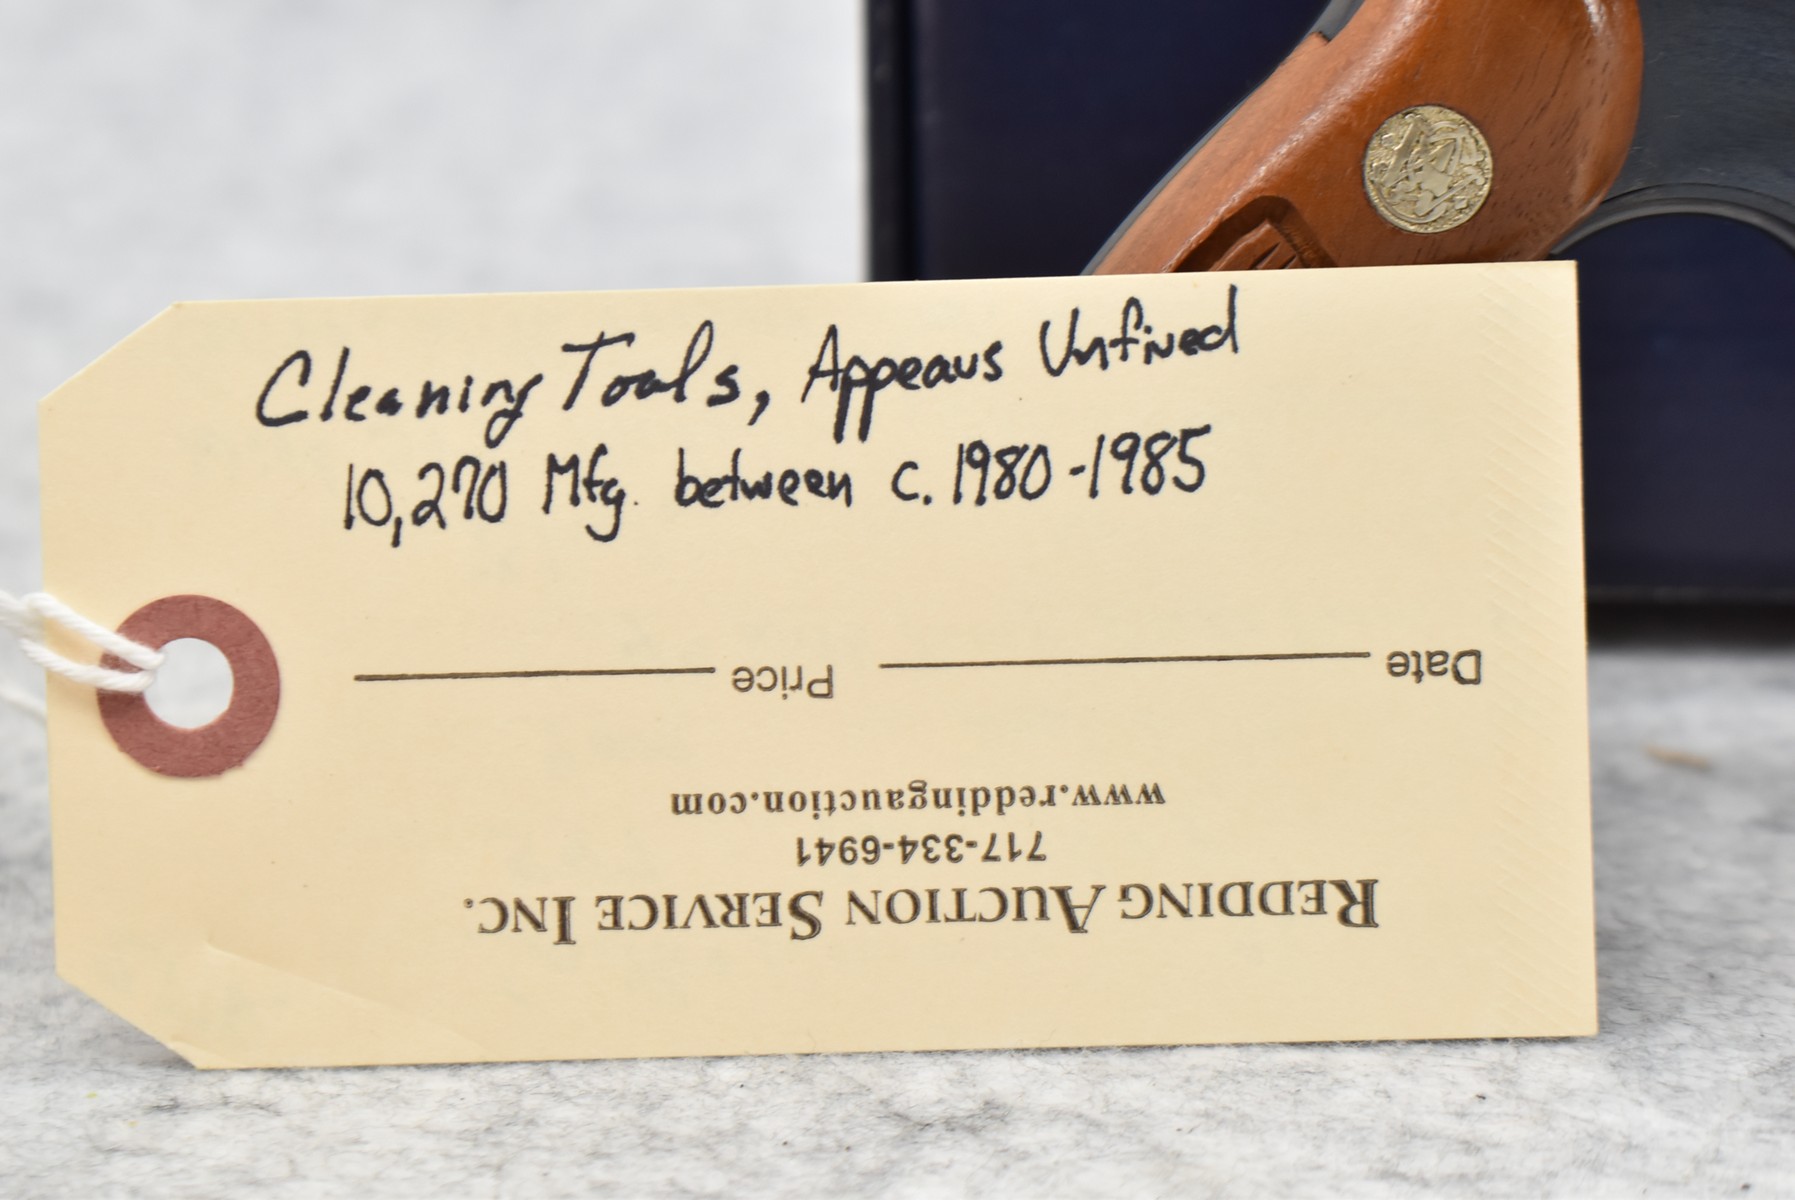 Cleaning Tools, Appears Unfired
10,270 Mfg. between c. 1980-1985
Date Price
www.reddingauction.com
717-334-6941
Redding Auction Service Inc.